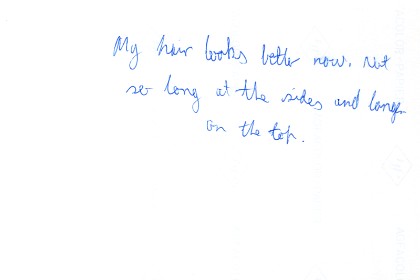 My hair looks better now. Not
so long at the sides and longer
on the top.